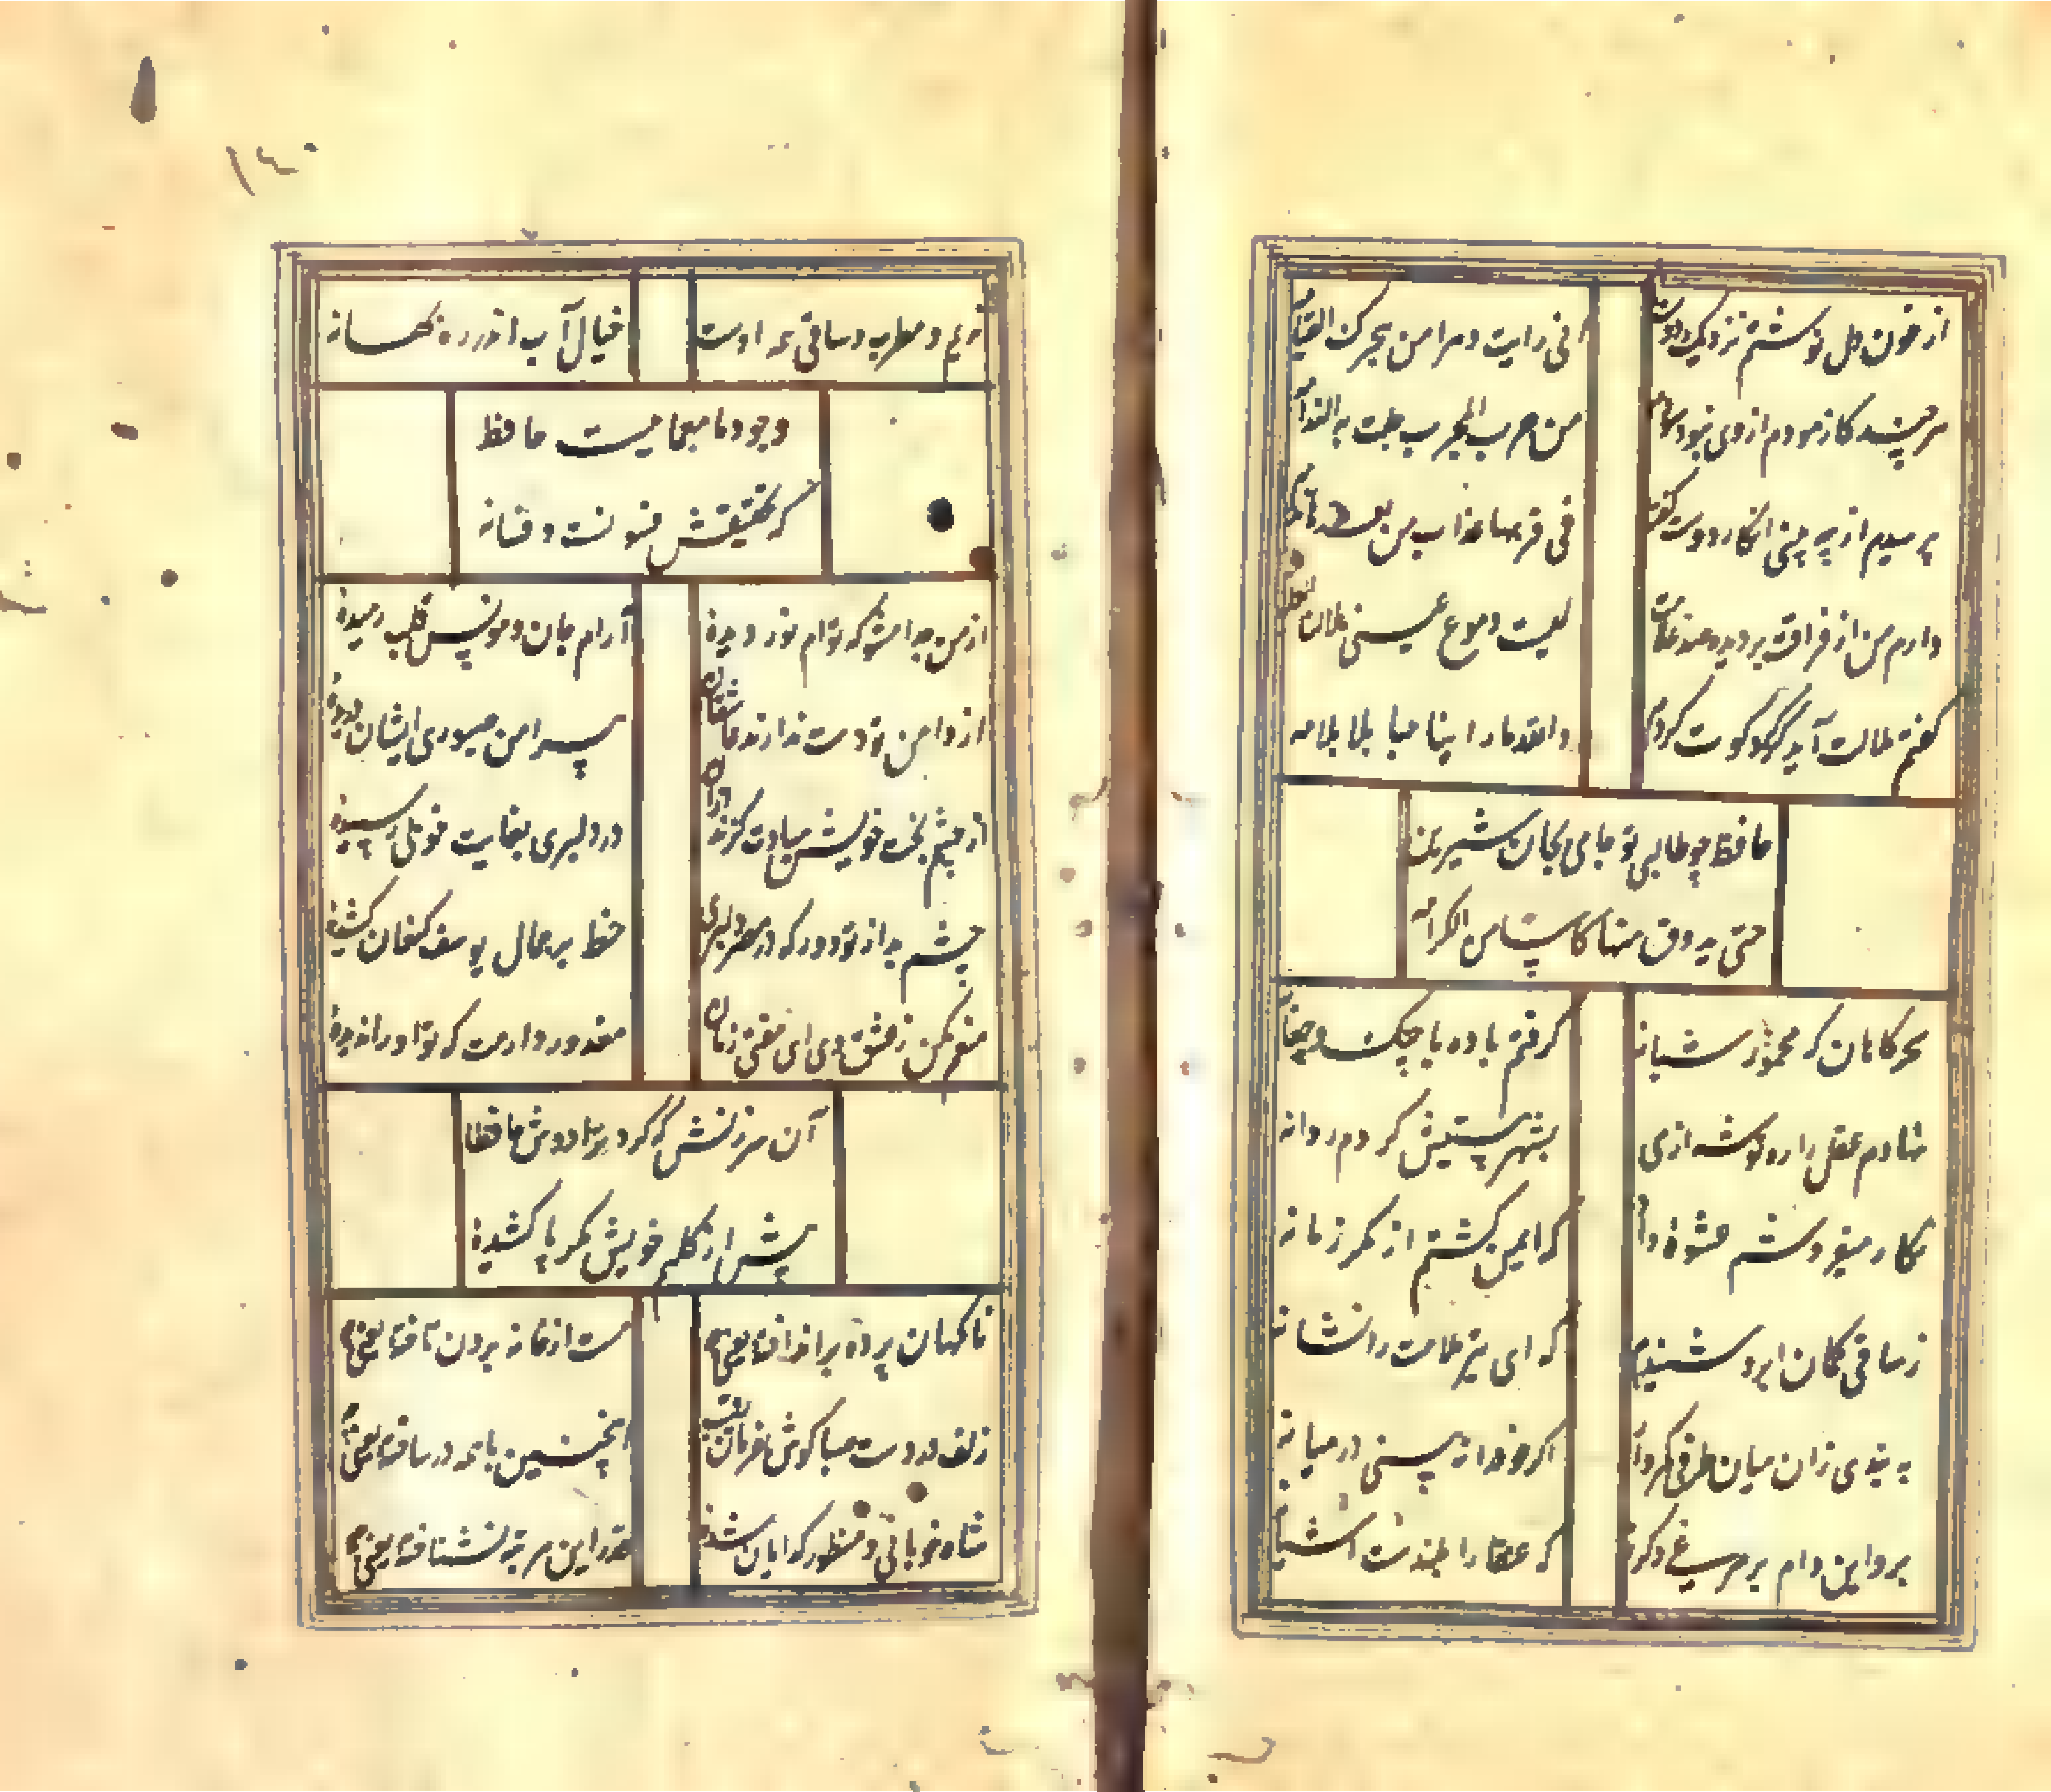 از خون دل نوشتم نزدیک دوست نامه
انی رایت دهرا من هجرک القیامه
هر چند کازمودم از وی نبود سودم
من جرب المجرب حلت به الندامه
پرسیدم از طبیبی احوال دوست گفتا
فی قربها عذاب من بعدها
دارم من از فراقت بر دیده صد علامت
لیست دموع عینی هذا لنا العلامه
گفتم ملامت آید گر گرد کوت گردم
والله ما راینا حبا بلا ملامه
حافظ چو طالبی تو جامی بجان شیرین
حتی یذوق منها کاسا من الکرامه
سحرگاهان که مخمور شبانه
گرفتم باده با چنگ و چغانه
نهادم عقل را ره توشه از می
بشهر هستیش کردم روانه
نگار میفروشم عشوهٔ داد
که ایمن گشتم از مکر زمانه
ز ساقی کمان ابرو شنیدم
که ای تیر ملامت را نشانه
نه بندی زان میان طرفی کمروار
اگر خود را نه بینی در میانه
برو این دام بر مرغ دگر نه
که عنقا را بلندست آشیانه
۱۴۰
ندیم و مطرب و ساقی همه اوست
خیال آب اندر ره بهانه
وجود ما معماییست حافظ
که تحقیقش فسونست و فسانه
از من جدا مشو که توام نور دیده
آرام جان و مونس قلب رمیده
از دامن تو دست ندارند عاشقان
پیراهن صبوری ایشان دریده
از چشم بخت خویش مبادت گزند از آن
در دلبری بغایت خوبی رسیده
چشم بد از تو دور که در مصر دلبری
خط بر جمال یوسف کنعان کشیده
منعم مکن ز عشق وی ای مفتی زمان
معذور دارمت که تو او را ندیده
آن سرزنش که کرد ترا دوش حافظا
بیش از گلیم خویش مگر پا کشیده
ناگهان پرده برانداخته یعنی چه
مست از خانه برون تاخته یعنی چه
زلف در دست صبا گوش بفرمان رقیب
اینچنین با همه در ساخته یعنی چه
شاه خوبانی و منظور گدایان شده
قدر این مرتبه نشناخته یعنی چه